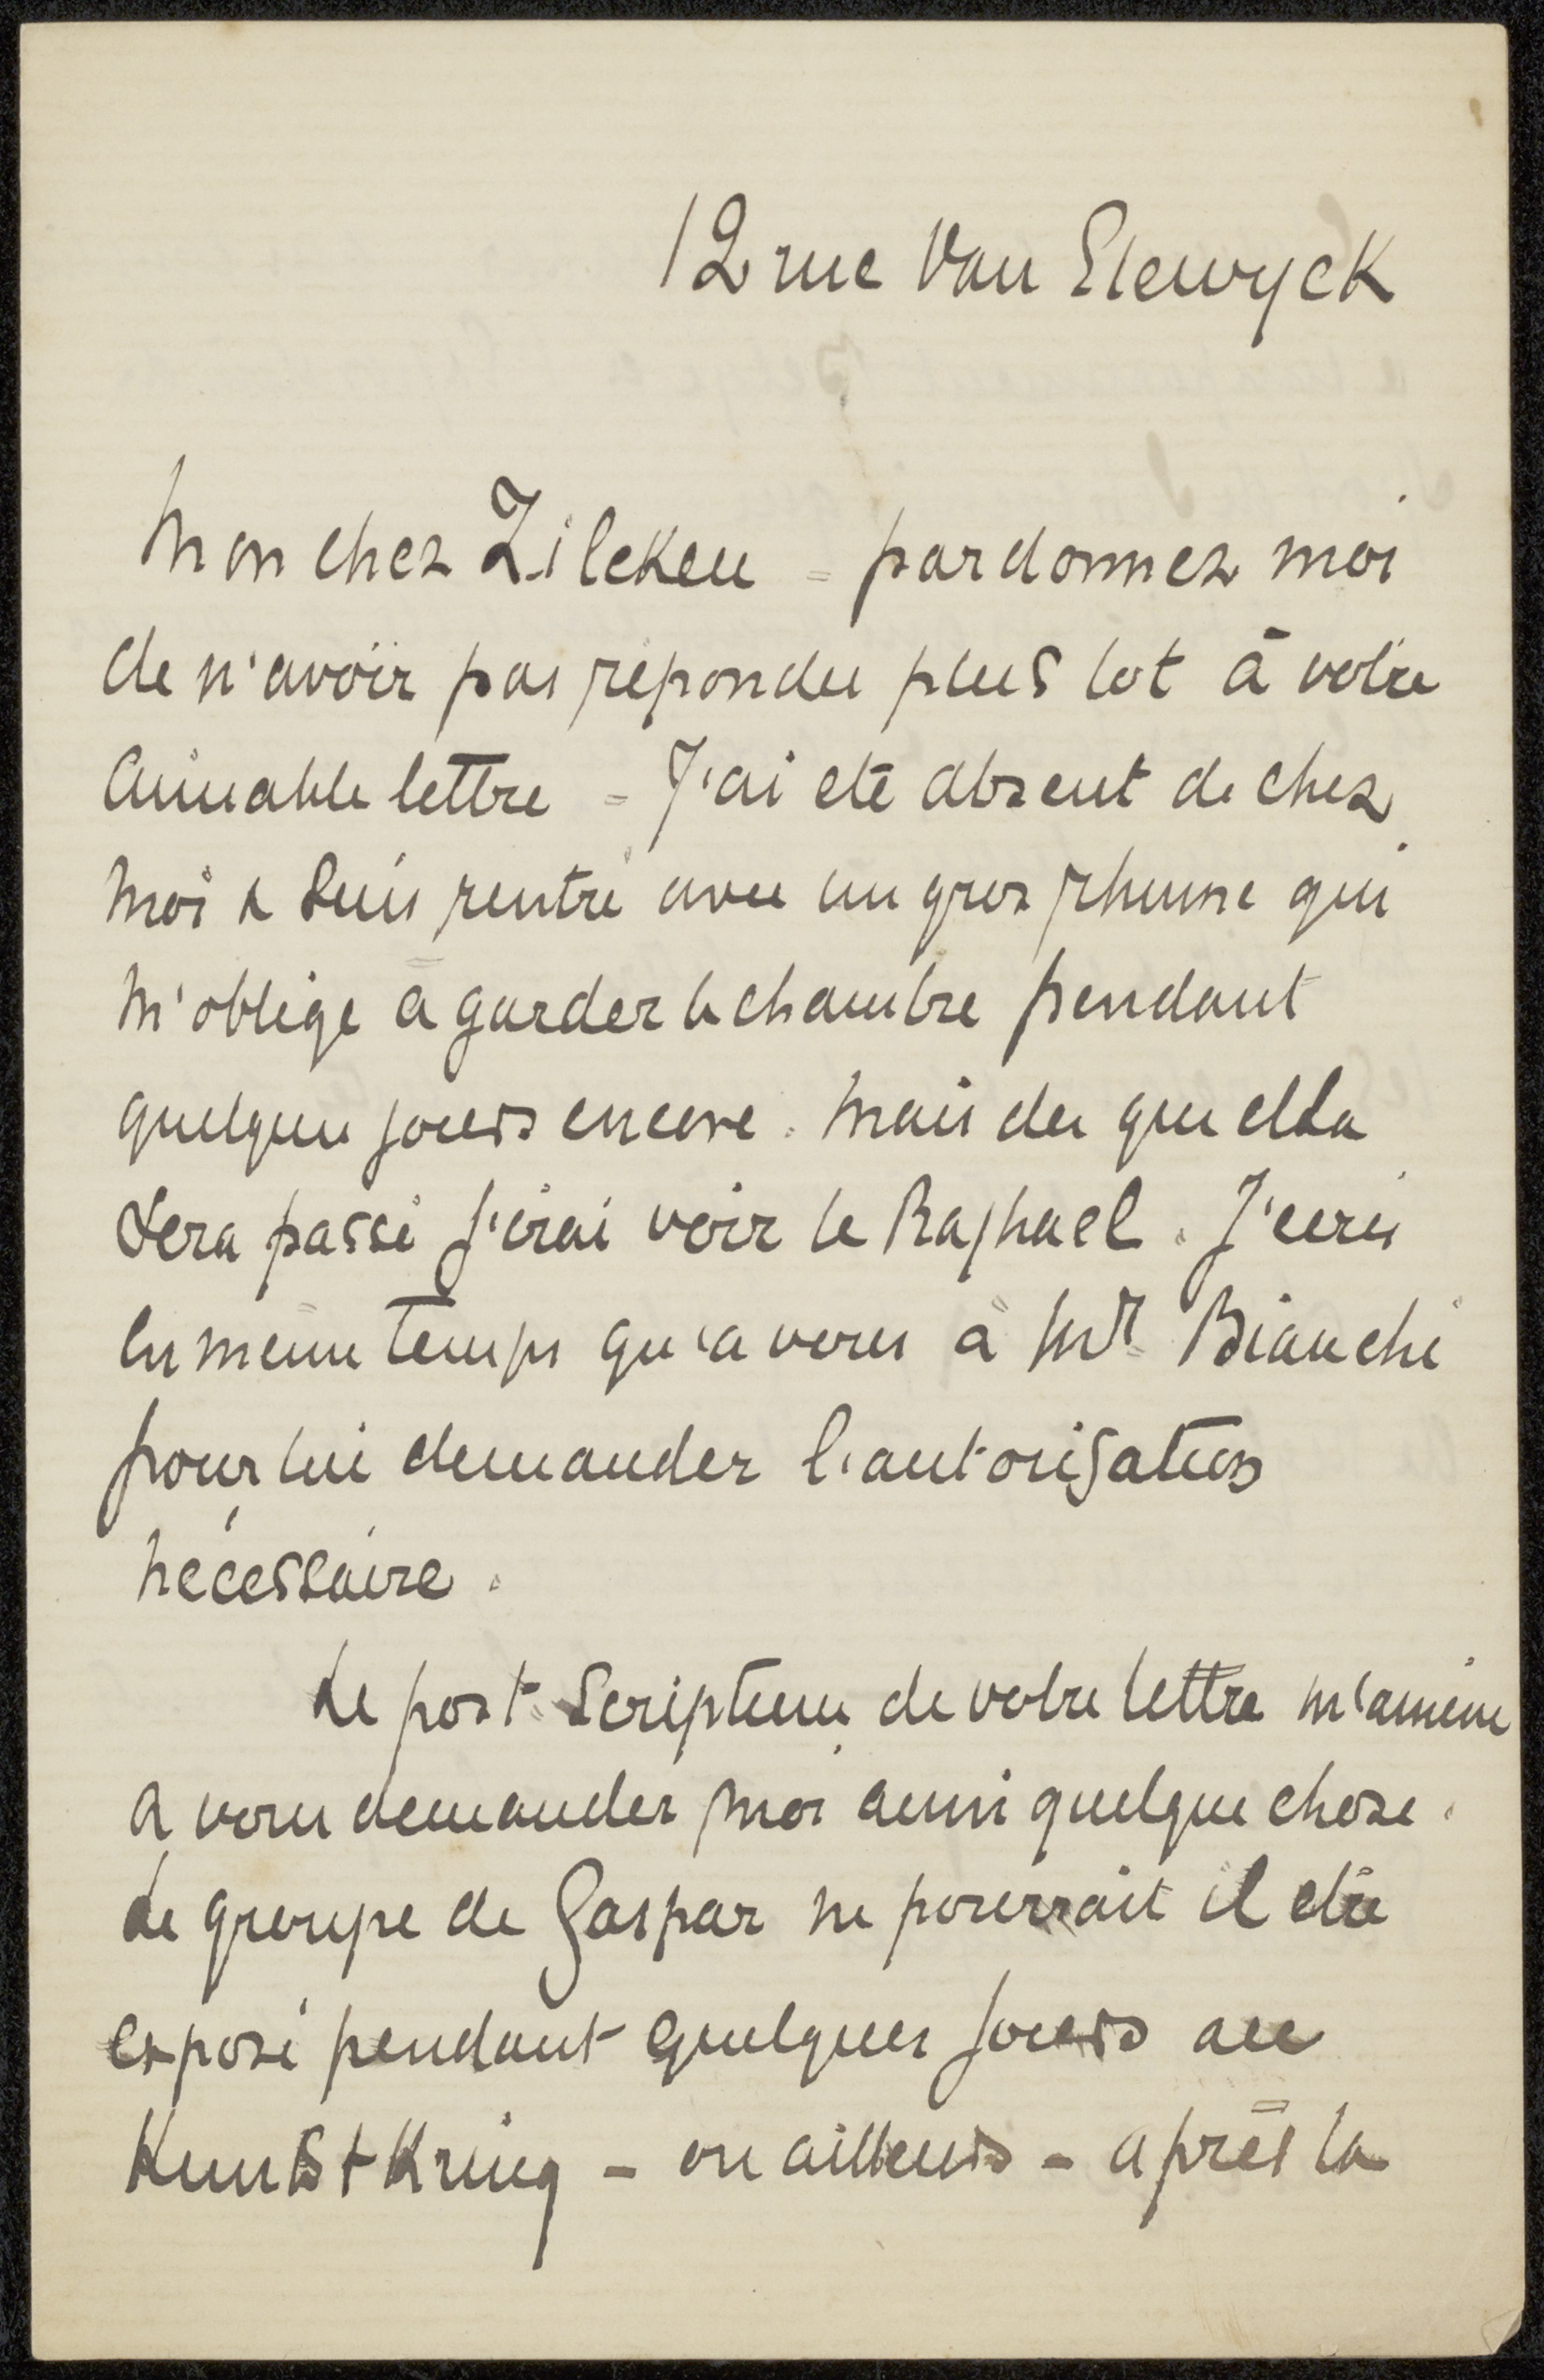 12 rue Van Elewyck
Mon cher Zilcken = pardonnez moi
de n'avoir pas repondu plus tot à votre
aimable lettre = J'ai eté absent de chez
moi & suis rentré avec un gros rhume qui
m'oblige a garder la chambre pendant
quelques jours encore. Mais des que cela
sera passé j'irai voir le Raphael. J'ecris
en meme temps qu'a vous à Mr Bianchi
pour lui demander l'autorisation
nécessaire.
Le post-scriptum de votre lettre m'amène
a vous demander moi aussi quelque chose.
Le groupe de Gaspar ne pourrait il etre
exposé pendant quelques jours au
Kunstkring - ou ailleurs - après la